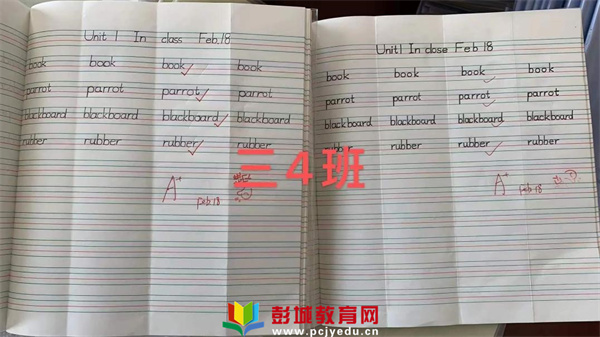 Unit 1 In class Feb.18
book book book book
parrot parrot parrot parrot
blackboard blackboard blackboard blackboard
rubber rubber rubber rubber
A+
Feb 18
Unit1 In close Feb 18
book book book book
parrot parrot parrot parrot
blackboard blackboard blackboard blackboard
rubber rubber rubber rubber
A+
Feb 18
三4班
彭城教育网
www.pcjyedu.cn